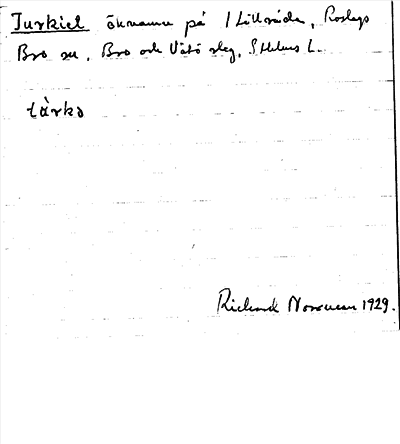 Turkiel öknamn på 1 Lillnäda, Roslags
Bro sn, Bro och Vätö skg, Sthlms L.
tärkə
Richard Norrman 1929.